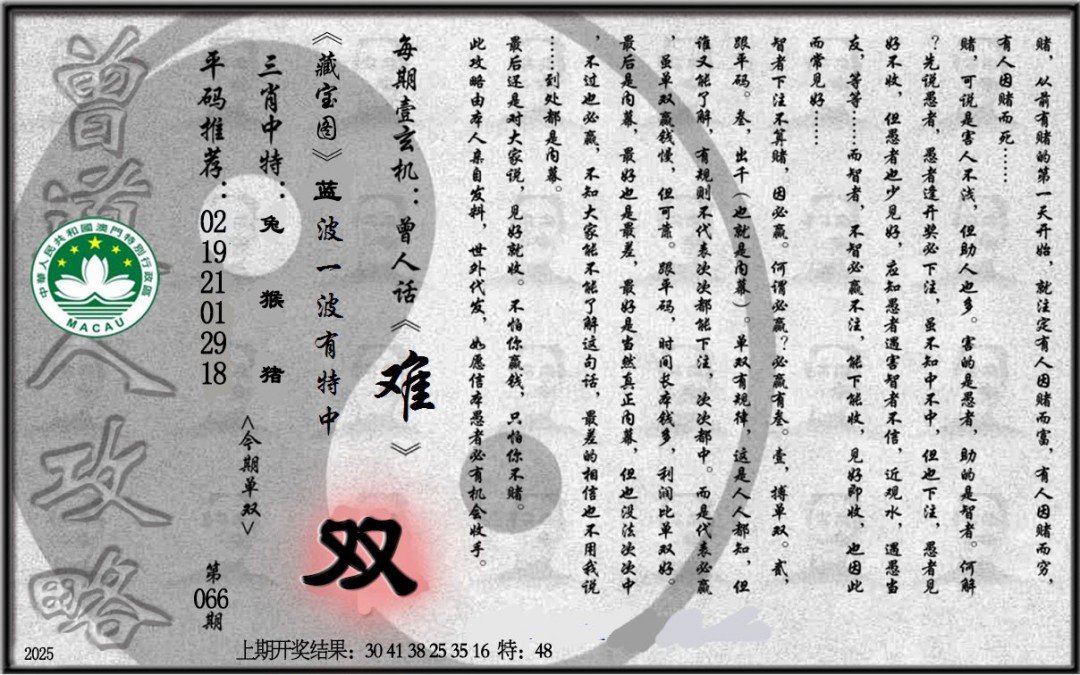 赌，从前有赌的第一天开始，就注定有人因赌而富，有人因赌而穷，
有人因赌而死……
赌，可说是害人不浅，但助人也多。害的是愚者，助的是智者。何解
？先说愚者，愚者逢开奖必下注，虽不知中不中，但也下注，愚者见
好不收，但愚者也少见好，应知愚者遇害智者不信，近观水，遇愚当
友，等等……而智者，不智必赢不注，能下能收，见好即收，也因此
而常见好……
智者下注不算赌，因必赢。何谓必赢？必赢有叁。壹，搏单双。贰，
跟平码。叁，出千（也就是内幕）。单双有规律，这是人人都知，但
谁又能了解，有规则不代表次次都能下注，次次都中。而是代表必赢
，虽单双赢钱慢，但可靠。跟平码，时间长本钱多，利润比单双好。
最后是内幕，最好也是最差，最好是当然真正内幕，但也没法次次中
，不过也必赢，不知大家能不能了解这句话，最差的相信也不用我说
……到处都是内幕。
最后还是对大家说，见好就收。不怕你赢钱，只怕你不赌。
此攻略由本人亲自发料，世外代发，如愿信本愚者必有机会收手。
每期壹玄机：曾人话《难》
《藏宝图》蓝波一波有特中
双
三肖中特：兔 猴 猪
<今期单双>
平码推荐：02 19 21 01 29 18
第066期
曾道人攻略
中華人民共和國澳門特別行政區
MACAU
2025
上期开奖结果：30 41 38 25 35 16 特：48